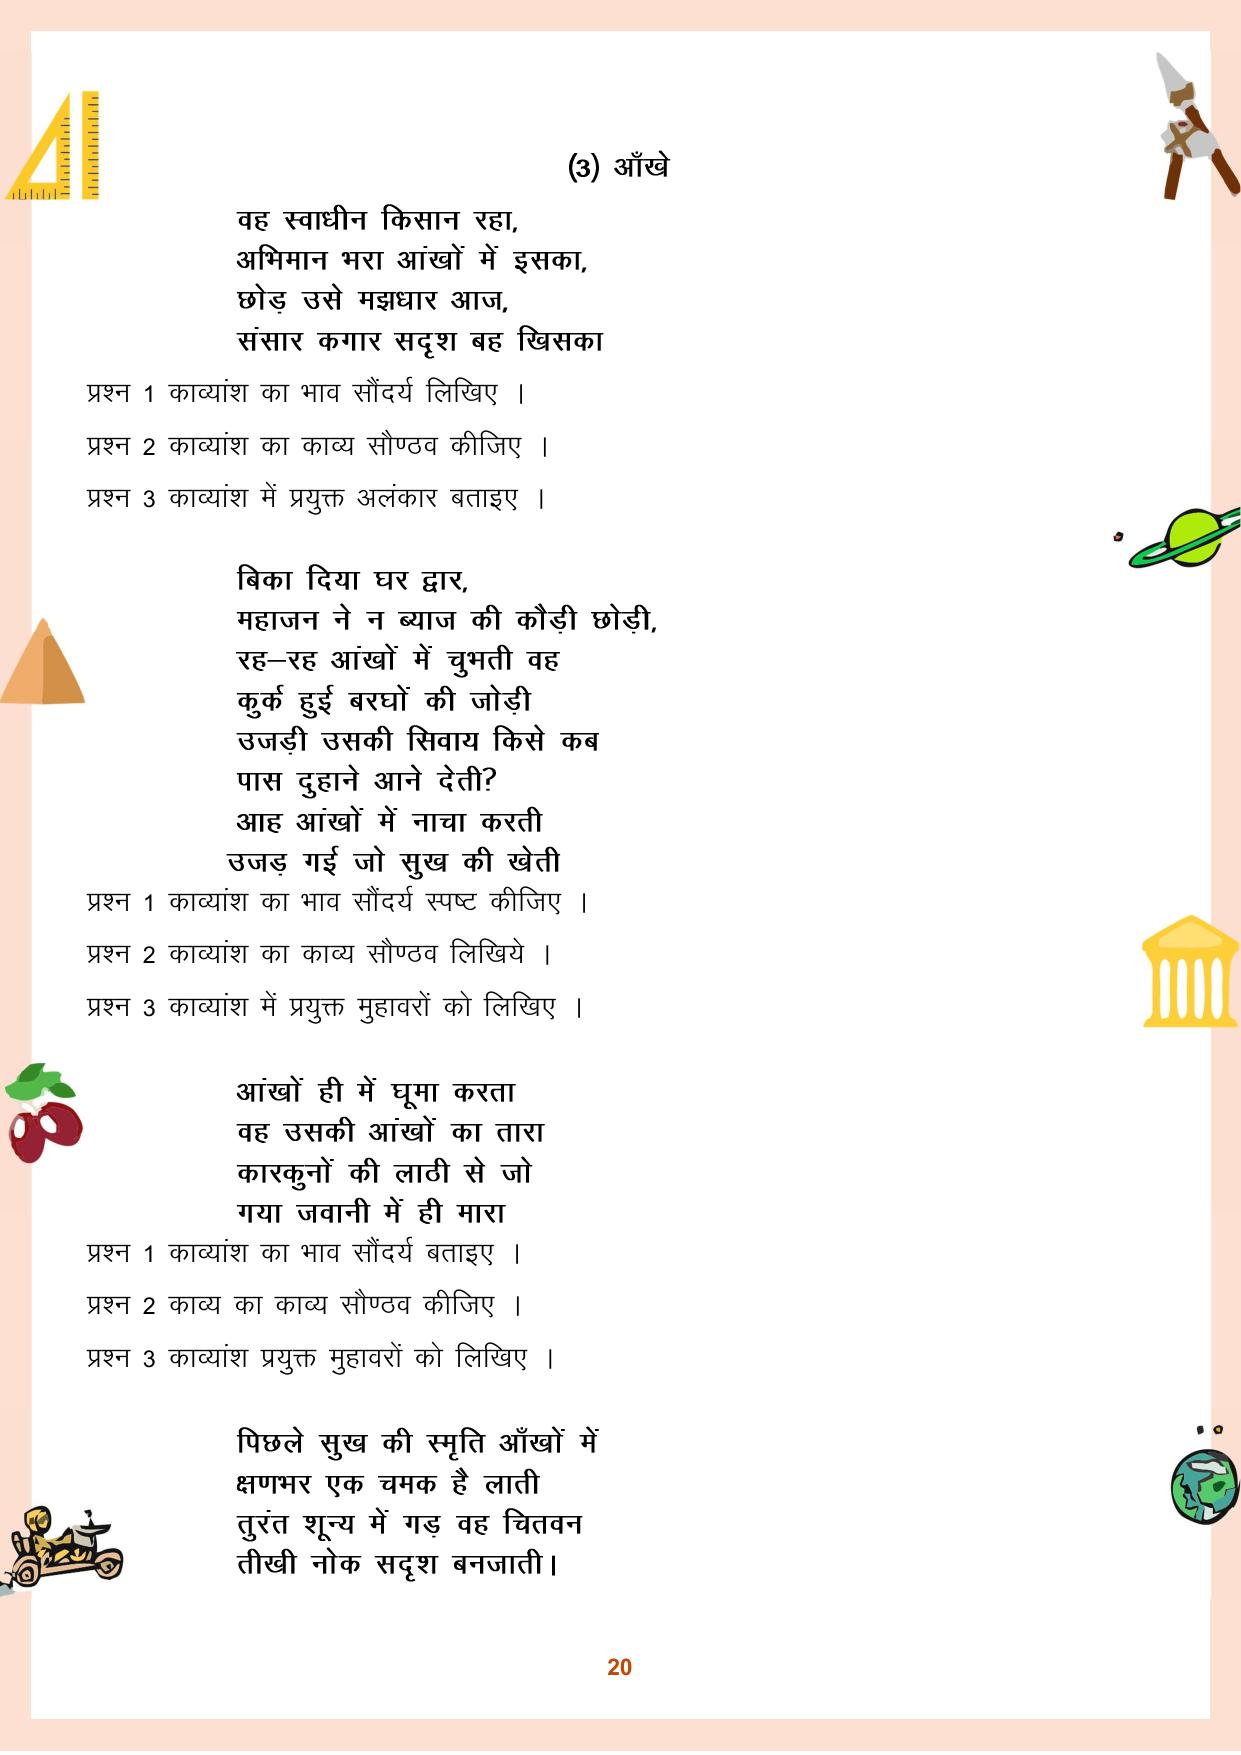 (3) आँखे
वह स्वाधीन किसान रहा,
अभिमान भरा आंखों में इसका,
छोड़ उसे मझधार आज,
संसार कगार सदृश बह खिसका
प्रश्न 1 काव्यांश का भाव सौंदर्य लिखिए ।
प्रश्न 2 काव्यांश का काव्य सौण्ठव कीजिए ।
प्रश्न 3 काव्यांश में प्रयुक्त अलंकार बताइए ।
बिका दिया घर द्वार,
महाजन ने न ब्याज की कौड़ी छोड़ी,
रह–रह आंखों में चुभती वह
कुर्क हुई बरघों की जोड़ी
उजड़ी उसकी सिवाय किसे कब
पास दुहाने आने देती?
आह आंखों में नाचा करती
उजड़ गई जो सुख की खेती
प्रश्न 1 काव्यांश का भाव सौंदर्य स्पष्ट कीजिए ।
प्रश्न 2 काव्यांश का काव्य सौण्ठव लिखिये ।
प्रश्न 3 काव्यांश में प्रयुक्त मुहावरों को लिखिए ।
आंखों ही में घूमा करता
वह उसकी आंखों का तारा
कारकुनों की लाठी से जो
गया जवानी में ही मारा
प्रश्न 1 काव्यांश का भाव सौंदर्य बताइए ।
प्रश्न 2 काव्य का काव्य सौण्ठव कीजिए ।
प्रश्न 3 काव्यांश प्रयुक्त मुहावरों को लिखिए ।
पिछले सुख की स्मृति आँखों में
क्षणभर एक चमक है लाती
तुरंत शून्य में गड़ वह चितवन
तीखी नोक सदृश बनजाती।
20